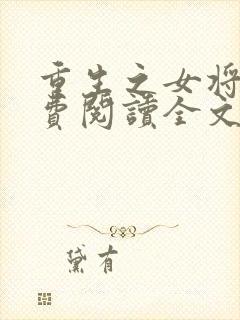 重生之女将
费閱讀全文
黛有